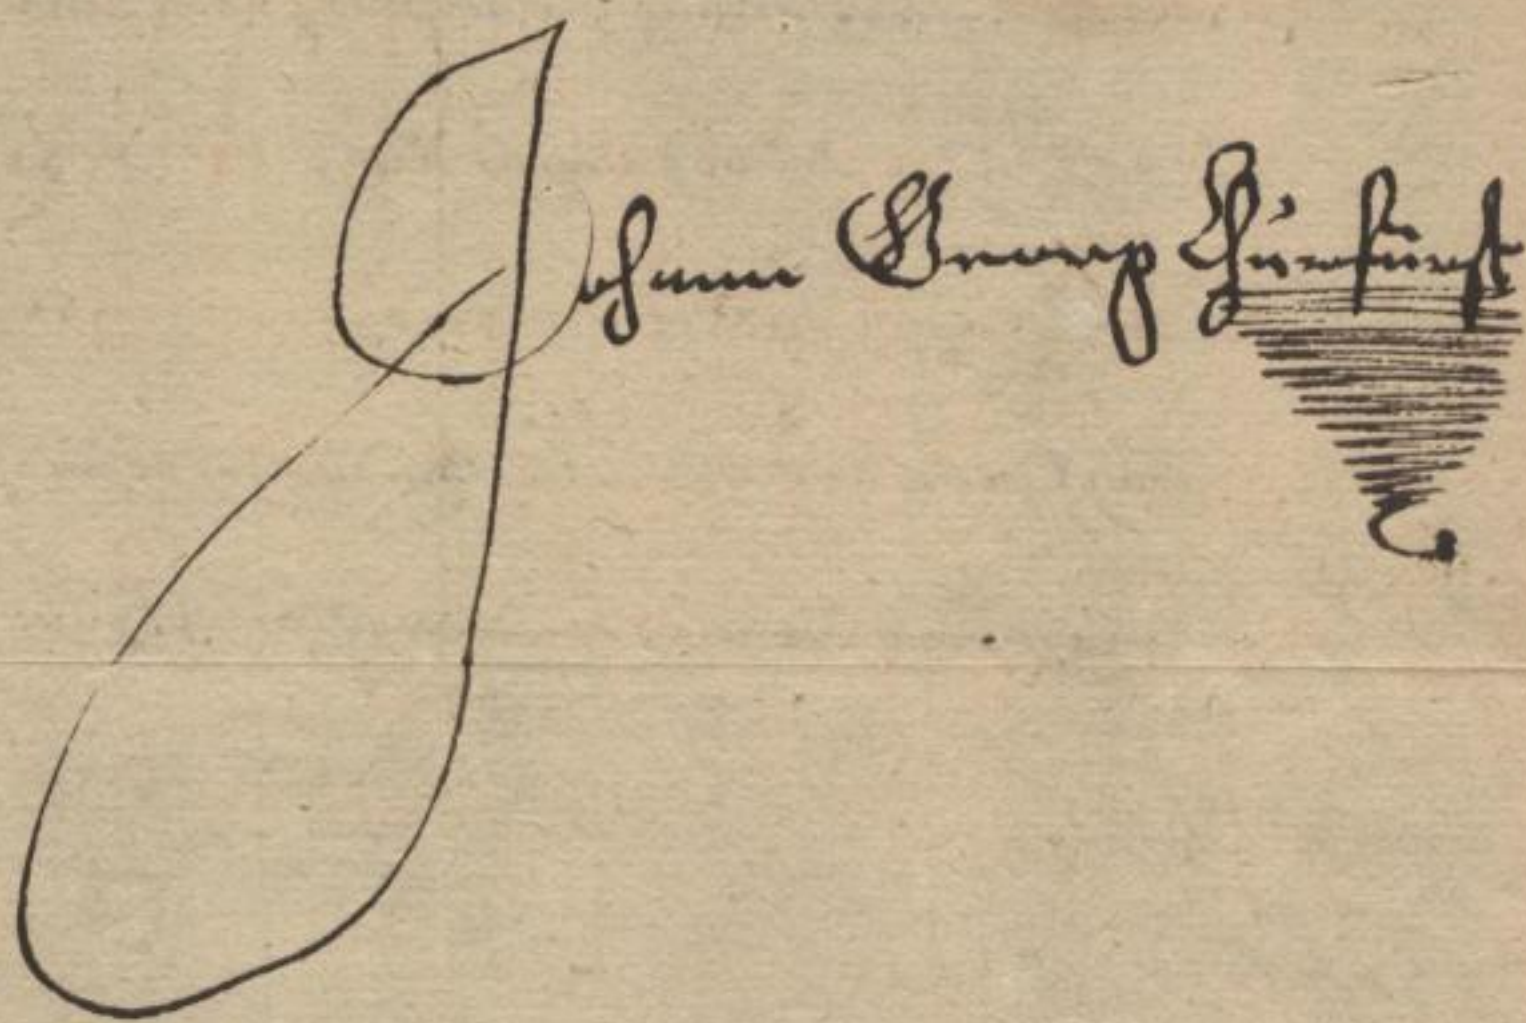 Johann Georg Churfürst